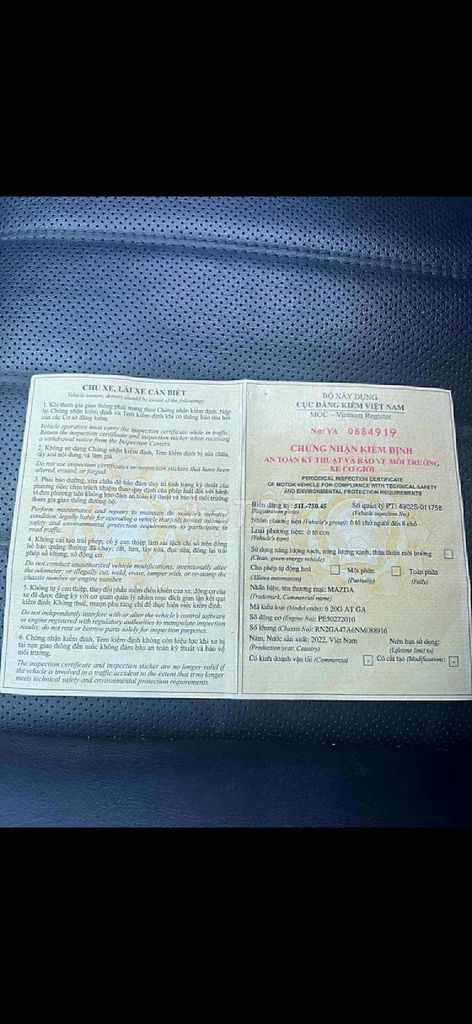 CHỦ XE, LÁI XE CẦN BIẾT
Vehicle owners, drivers should be aware of the followings:
1. Khi tham gia giao thông phải mang theo Chứng nhận kiểm định. Nộp
lại Chứng nhận kiểm định và Tem kiểm định khi có thông báo thu hồi
của các Cơ sở đăng kiểm.
Vehicle operators must carry the inspection certificate while in traffic.
Return the inspection certificate and inspection sticker when receiving
a withdrawal notice from the Inspection Centers.
2. Không sử dụng Chứng nhận kiểm định, Tem kiểm định bị sửa chữa,
tẩy xoá nội dung và làm giả.
Do not use inspection certificates or inspection stickers that have been
altered, erased, or forged.
3. Phải bảo dưỡng, sửa chữa để bảo đảm duy trì tình trạng kỹ thuật của
phương tiện; chịu trách nhiệm theo quy định của pháp luật đối với hành
vi đưa phương tiện không bảo đảm an toàn kỹ thuật và bảo vệ môi trường
tham gia giao thông đường bộ.
Perform maintenance and repairs to maintain the vehicle's technical
condition; legally liable for operating a vehicle that fails to meet technical
safety and environmental protection requirements to participate in
road traffic.
4. Không cải tạo trái phép, cố ý can thiệp làm sai lệch chỉ số trên đồng
hồ báo quãng đường đã chạy; cắt, hàn, tẩy xóa, đục sửa, đóng lại trái
phép số khung, số động cơ.
Do not conduct unauthorized vehicle modifications; intentionally alter
the odometer; or illegally cut, weld, erase, tamper with, or re-stamp the
chassis number or engine number.
5. Không tự ý can thiệp, thay đổi phần mềm điều khiển của xe, động cơ của
xe đã được đăng ký với cơ quan quản lý nhằm mục đích gian lận kết quả
kiểm định; Không thuê, mượn phụ tùng chỉ để thực hiện việc kiểm định.
Do not independently interfere with or alter the vehicle's control software
or engine registered with regulatory authorities to manipulate inspection
results; do not rent or borrow parts solely for inspection purposes.
6. Chứng nhận kiểm định, Tem kiểm định không còn hiệu lực khi xe bị
tai nạn giao thông đến mức không đảm bảo an toàn kỹ thuật và bảo vệ
môi trường.
The inspection certificate and inspection sticker are no longer valid if
the vehicle is involved in a traffic accident to the extent that it no longer
meets technical safety and environmental protection requirements.
BỘ XÂY DỰNG
CỤC ĐĂNG KIỂM VIỆT NAM
MOC - Vietnam Register
No: VA 0884919
CHỨNG NHẬN KIỂM ĐỊNH
AN TOÀN KỸ THUẬT VÀ BẢO VỆ MÔI TRƯỜNG
XE CƠ GIỚI
PERIODICAL INSPECTION CERTIFICATE
OF MOTOR VEHICLE FOR COMPLIANCE WITH TECHNICAL SAFETY
AND ENVIRONMENTAL PROTECTION REQUIREMENTS
Biển đăng ký: 51L-750.45 Số quản lý PT: 4902S-011758
(Registration plate) (Vehicle inspection No.)
Nhóm phương tiện (Vehicle's group): ô tô chở người đến 8 chỗ
Loại phương tiện: ô tô con
(Vehicle's type)
Sử dụng năng lượng sạch, năng lượng xanh, thân thiện môi trường
(Clean, green energy vehicle)
Cho phép tự động hoá Một phần Toàn phần
(Allows automation) (Partially) (Fully)
Nhãn hiệu, tên thương mại: MAZDA
(Trademark, Commercial name)
Mã kiểu loại (Model code): 6 20G AT GA
Số động cơ (Engine No): PE50272010
Số khung (Chassis No): RN2GA47A6NM088916
Năm, Nước sản xuất: 2022, Việt Nam Niên hạn sử dụng:
(Production year, Country) (Lifetime limit to)
Có kinh doanh vận tải (Commercial Có cải tạo (Modification):